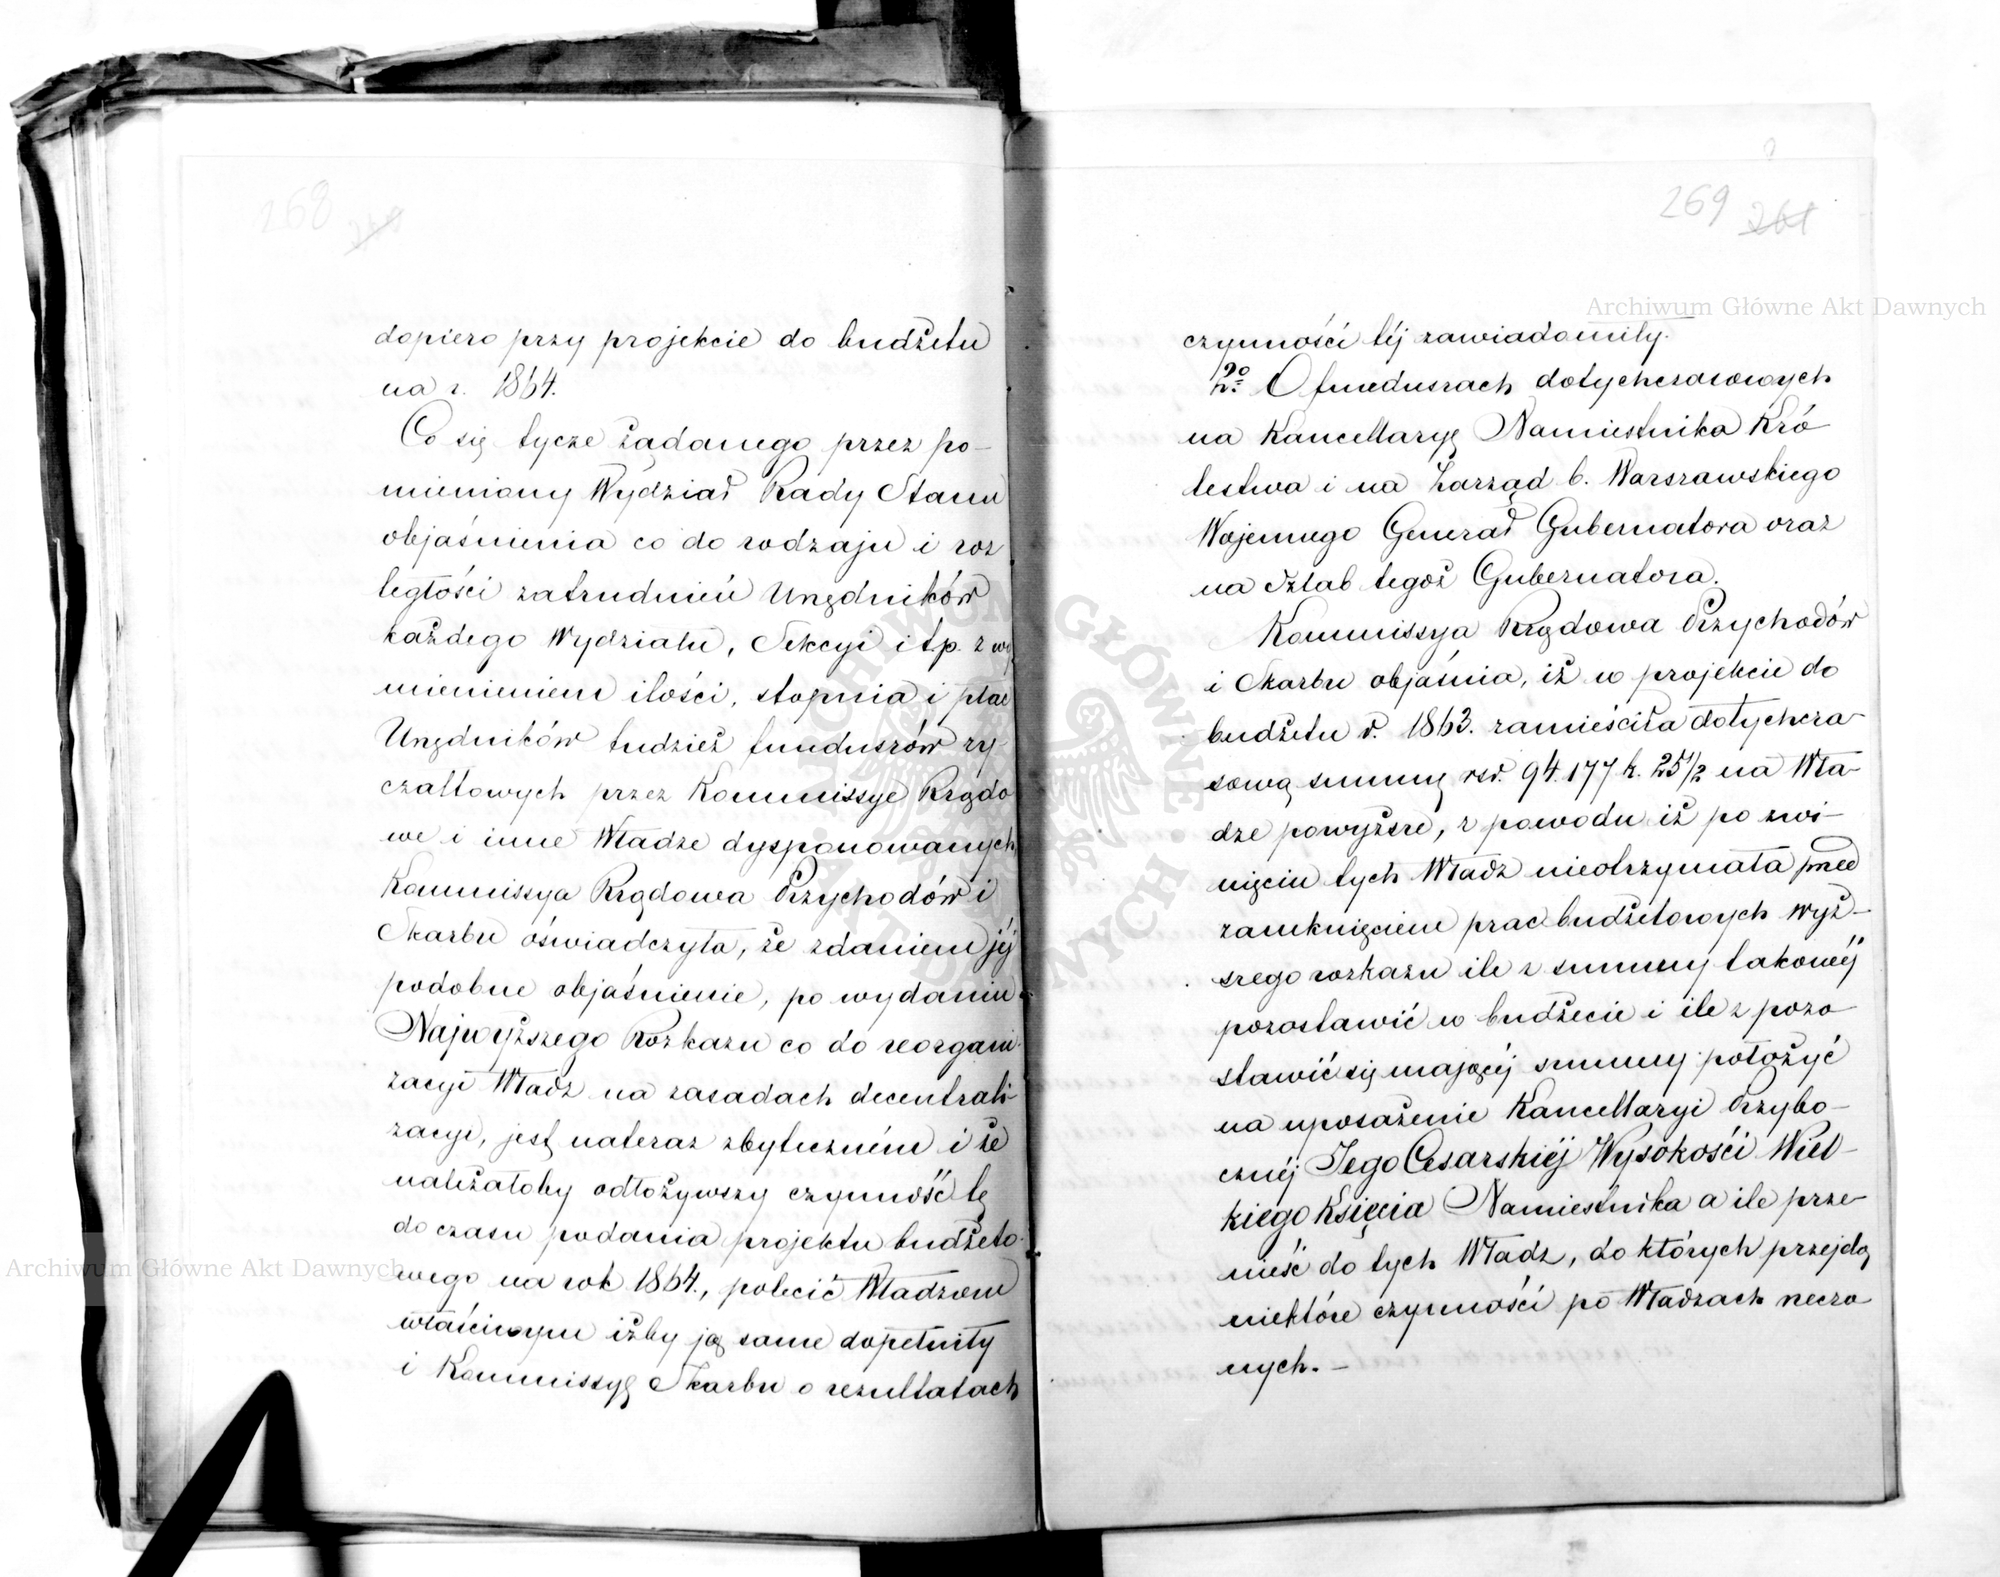 268
dopiero przy projekcie do budżetu
na r. 1864.
Co się tycze żądanego przez po-
mieniony Wydział Rady Stanu
objaśnienia co do rodzaju i roz
ległości zatrudnień Urzędników
każdego Wydziału, Sekcyi i t p. z wy
mienieniem ilości, stopnia i płac
Urzędników tudzież funduszów ry-
czałtowych przez Kommissye Rządo
we i inne Władze dysponowanych
Kommissya Rządowa Przychodów i
Skarbu oświadczyła, że zdaniem jéj
podobne objaśnienie, po wydaniu
Najwyższego Rozkazu co do reorgani-
zacyi Władz na zasadach decentrali-
zacyi, jest nateraz zbyteczném i że
należałoby odłożywszy czynność tę
do czasu podania projektu budżeto-
wego na rok 1864., polecić Władzom
właściwym iżby ją same dopełniły
i Kommissyę Skarbu o rezultatach
269 261
czynności téj zawiadomiły.
2º O funduszach dotychczasowych
na Kancellaryę Namiestnika Kró
lestwa i na Zarząd b. Warszawskiego
Wojennego Generał Gubernatora oraz
na Sztab tegoż Gubernatora.
Kommissya Rządowa Przychodów
i Skarbu objaśnia, iż w projekcie do
budżetu r. 1863. zamieściła dotychcza-
sową summę rsr. 94.177 k. 25 1/2 na Wła-
dze powyższe, z powodu iż po zwi-
nięciu tych Władz nieotrzymała przed
zamknięciem prac budżetowych wyż-
szego rozkazu ile z summy takowéj
pozostawić w budżecie i ile z pozo
stawić się mającéj summy położyć
na uposażenie Kancellaryi Przybo-
cznéj Jego Cesarskiéj Wysokości Wiel-
kiego Księcia Namiestnika a ile prze-
nieść do tych Władz, do których przejdą
niektóre czynności po Władzach rzeczo
nych. -
Archiwum Główne Akt Dawnych
Archiwum Główne Akt Dawnych
ARCHIWUM GŁÓWNE AKT DAWNYCH